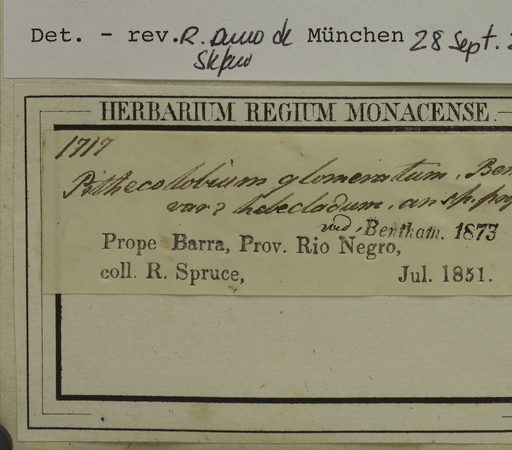 Det. - rev. R. de München 28 Sept.
HERBARIUM REGIUM MONACENSE.
1717
Pithecolobium glomeratum, Ben
var? heleocladum, an sp. prop
vid. Bentham. 1873
Prope Barra, Prov. Rio Negro,
coll. R. Spruce, Jul. 1851.